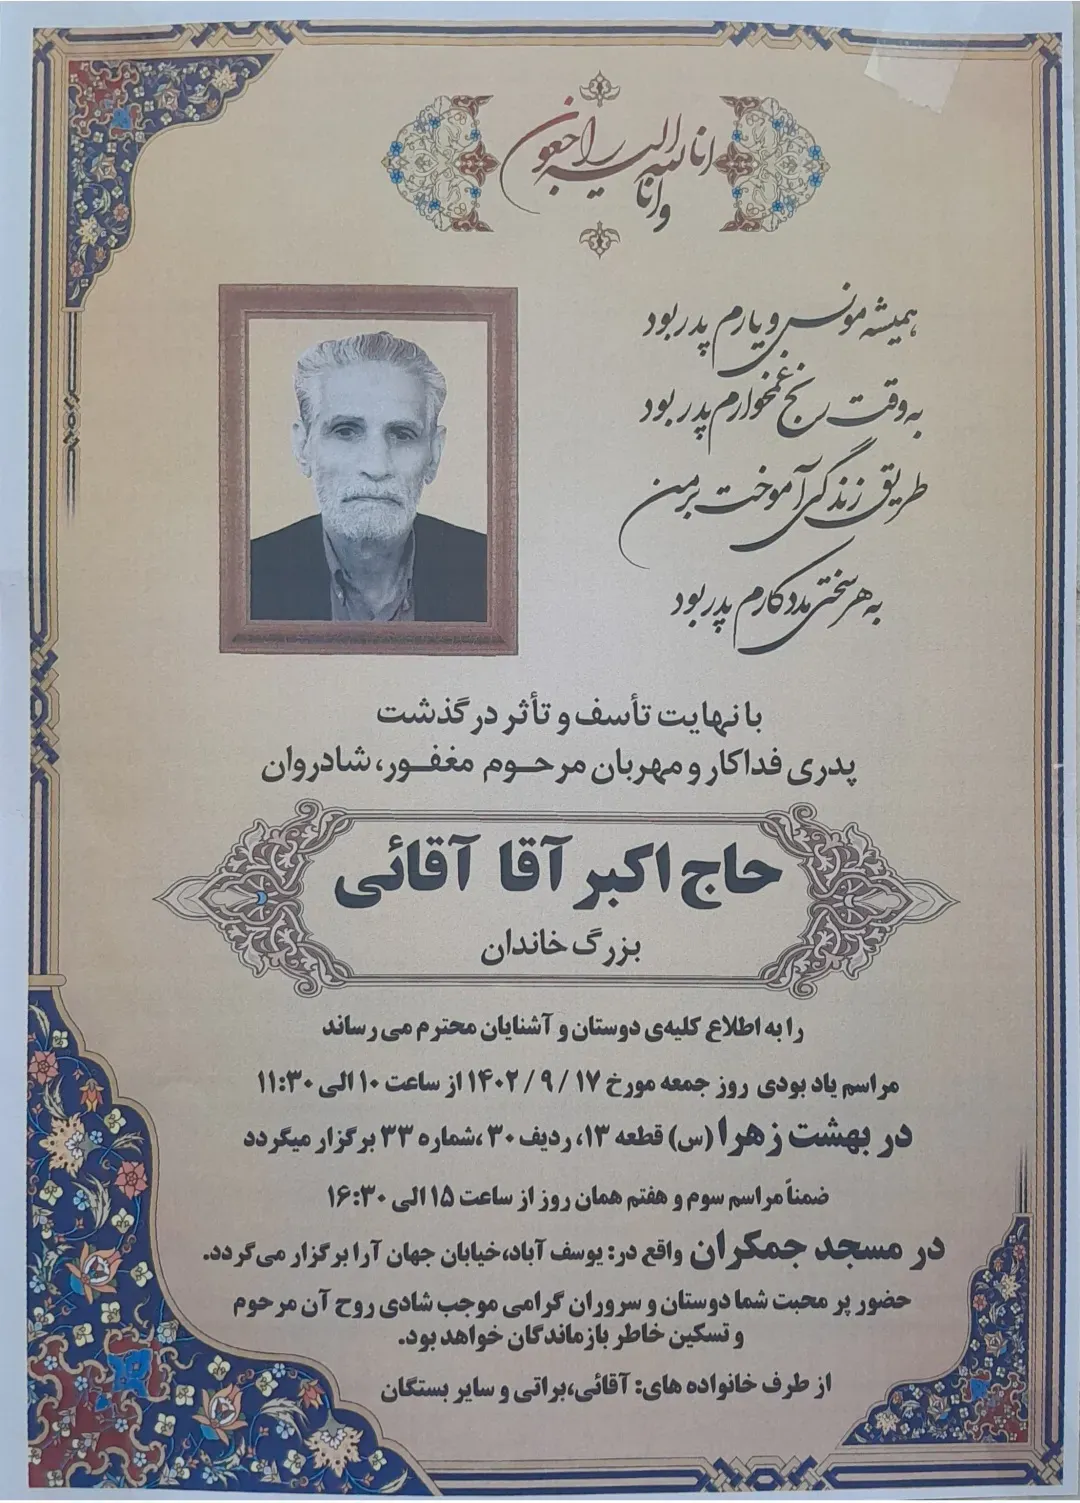 انا لله و انا الیه راجعون
همیشه مونس و یارم پدر بود
به وقت رنج غمخوارم پدر بود
طریق زندگی آموخت بر من
به هر سختی مددکارم پدر بود
با نهایت تأسف و تأثر درگذشت
پدری فداکار و مهربان مرحوم مغفور، شادروان
حاج اکبر آقا آقائی
بزرگ خاندان
را به اطلاع کلیه‌ی دوستان و آشنایان محترم می رساند
مراسم یاد بودی روز جمعه مورخ ۱۷ / ۹ / ۱۴۰۲ از ساعت ۱۰ الی ۱۱:۳۰
در بهشت زهرا (س) قطعه ۱۳، ردیف ۳۰ ،شماره ۳۳ برگزار میگردد
ضمناً مراسم سوم و هفتم همان روز از ساعت ۱۵ الی ۱۶:۳۰
در مسجد جمکران واقع در: یوسف آباد،خیابان جهان آرا برگزار می‌گردد.
حضور پر محبت شما دوستان و سروران گرامی موجب شادی روح آن مرحوم
و تسکین خاطر بازماندگان خواهد بود.
از طرف خانواده های: آقائی،براتی و سایر بستگان